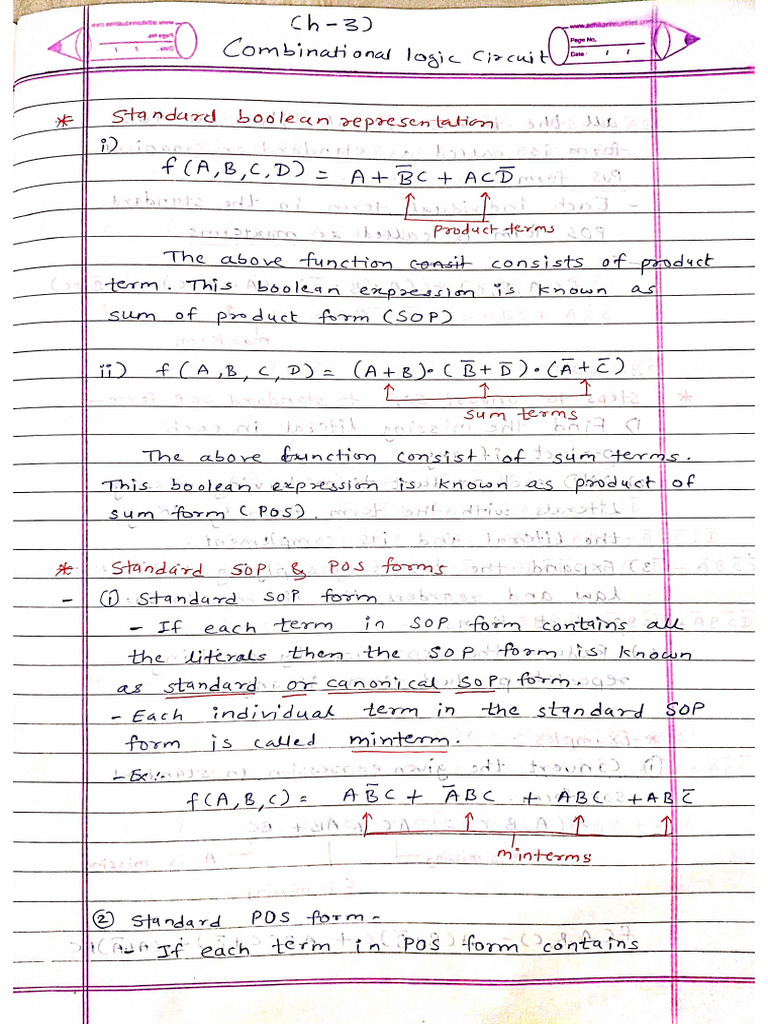 Ch-3)
Combinational logic Circuit
www.adhikarinkutties.com
Page No.
Date: / /
* Standard boolean representation
i)
f(A,B,C,D) = A + B̅C + ACD̅
Product terms
The above function consit consists of product
term. This boolean expression is known as
sum of product form (SOP)
ii) f(A,B,C,D) = (A+B)·(B̅+D̅)·(A̅+C̅)
sum terms
The above function consist of sum terms.
This boolean expression is known as product of
sum form (POS).
* Standard SOP & POS forms
- ① Standard SOP form
- If each term in SOP form contains all
the literals then the SOP form is known
as standard or canonical SOP form.
- Each individual term in the standard SOP
form is called minterm.
- Ex:-
f(A,B,C) = AB̅C + A̅BC + ABC + ABC̅
minterms
② Standard POS form -
- If each term in POS form contains